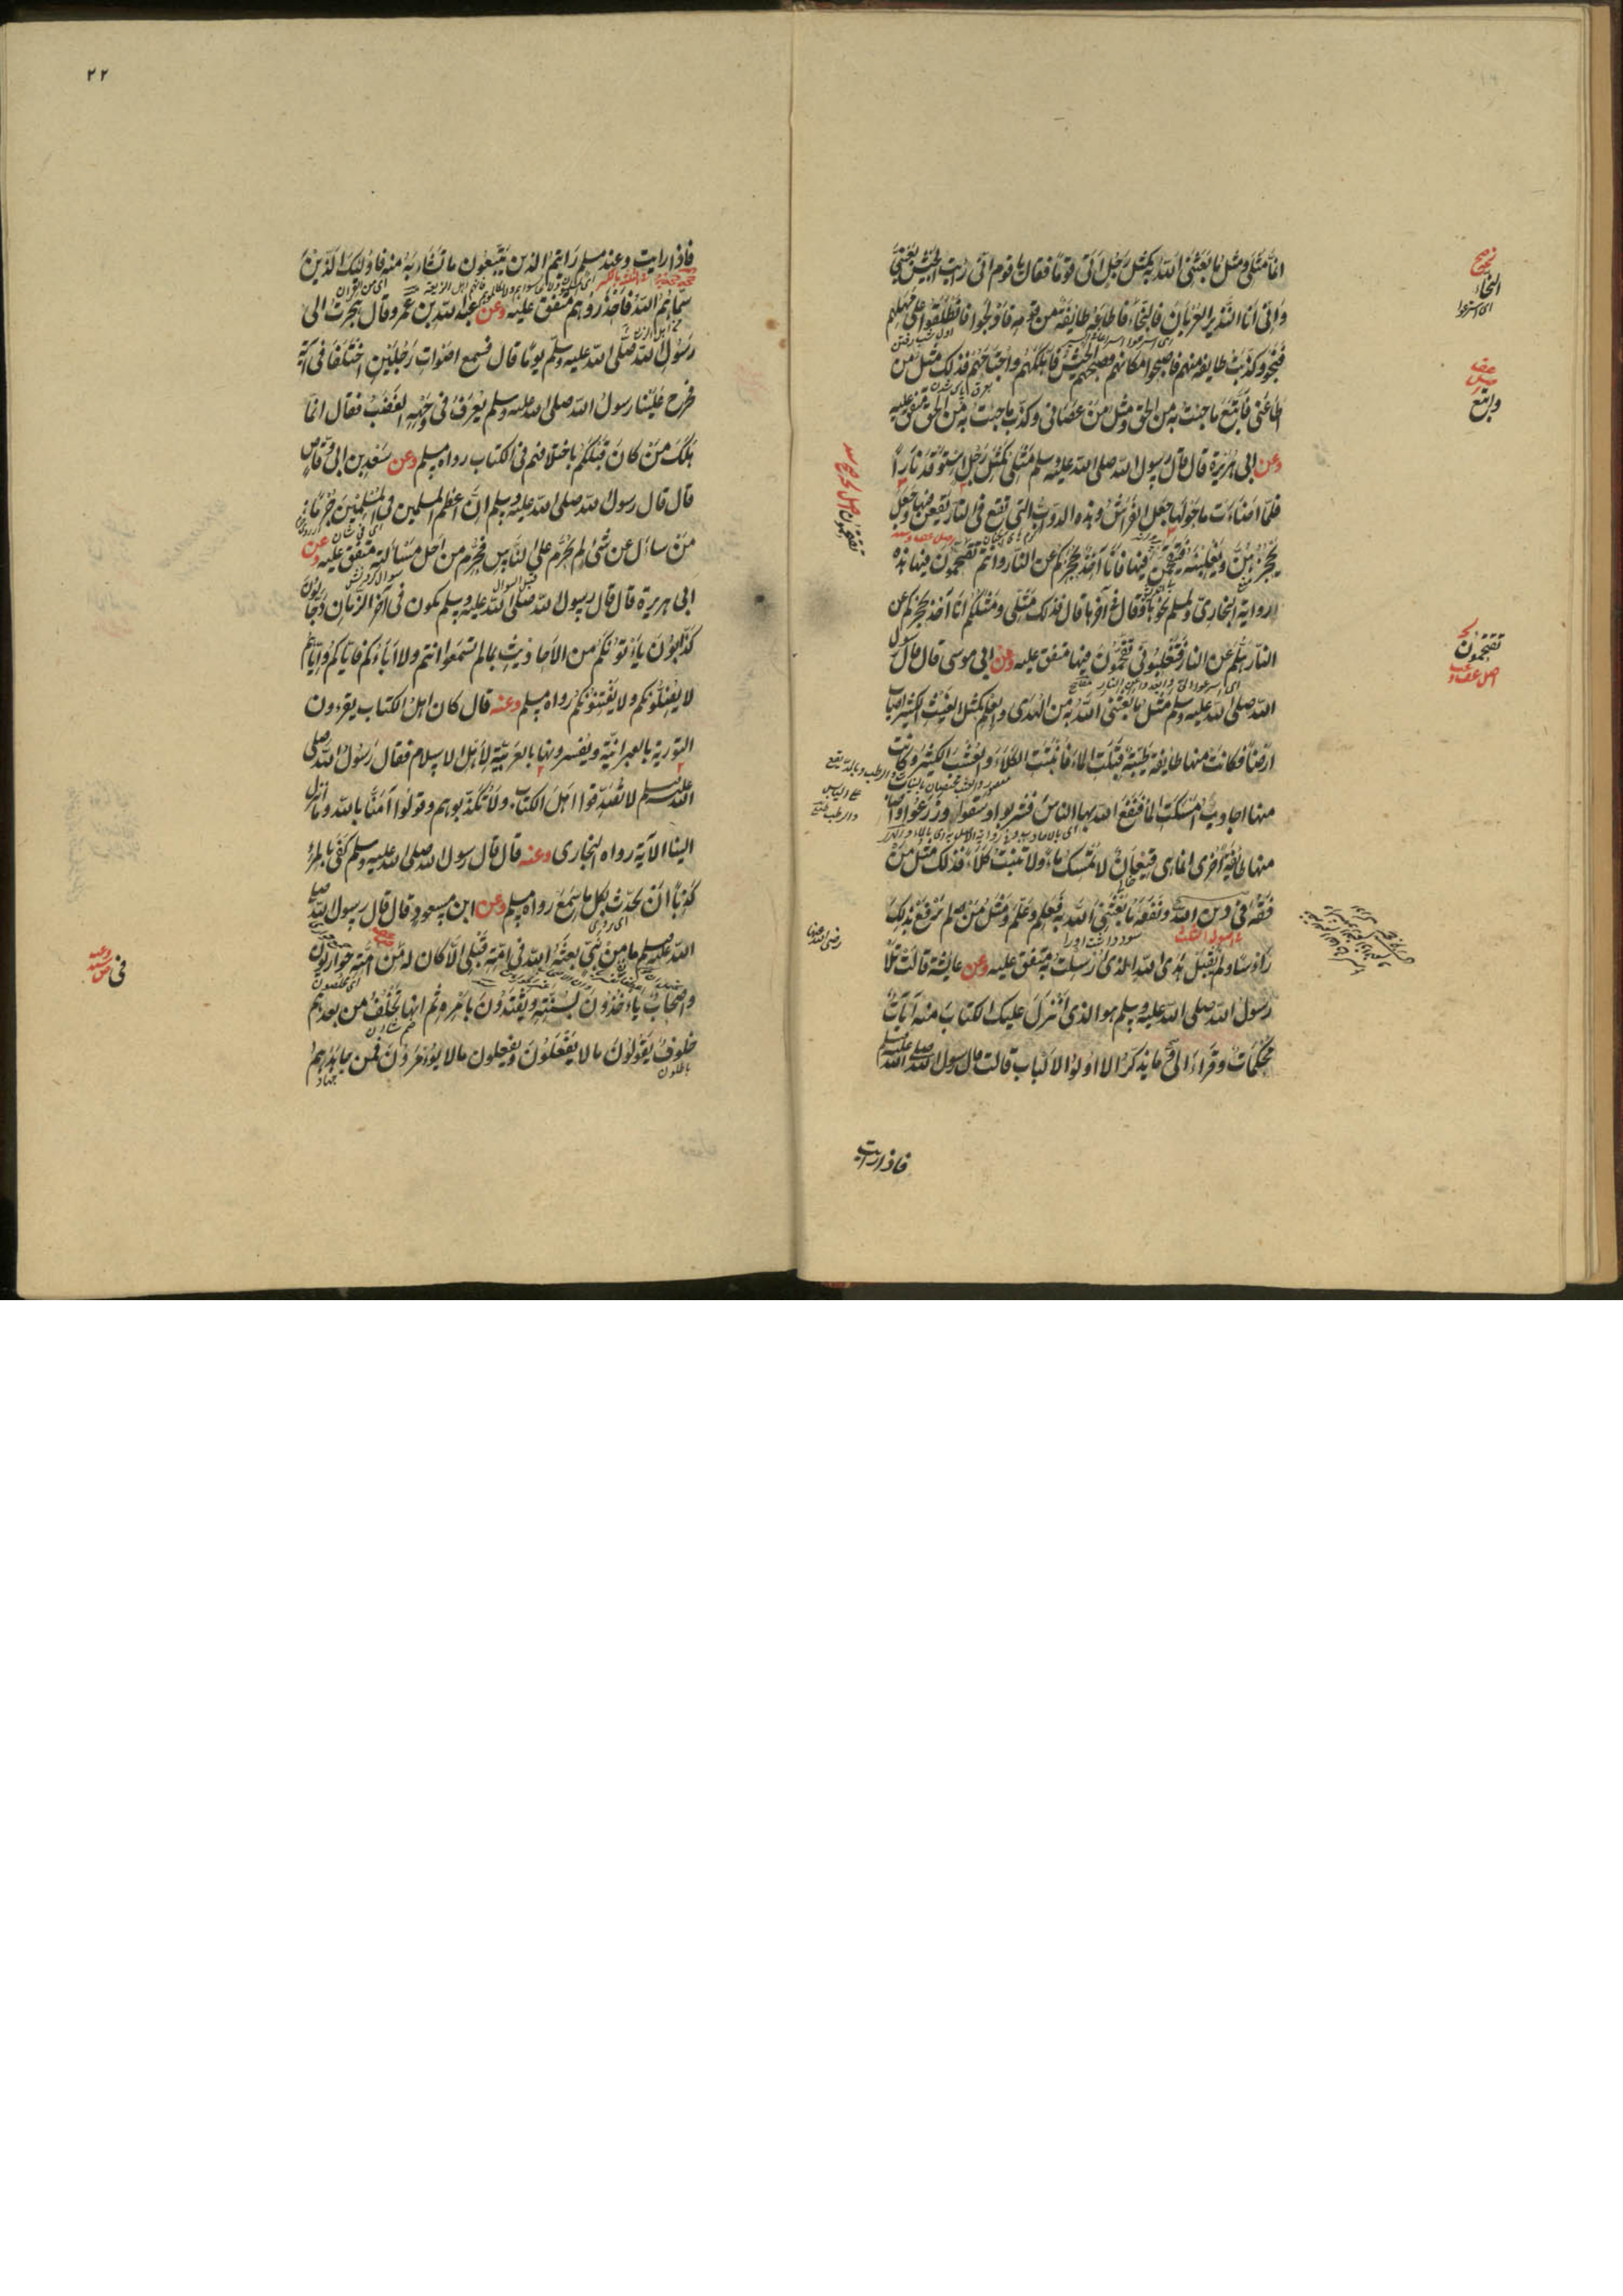 انما مثلی ومثل ما بعثنی الله به کمثل رجل اتی قوما فقال یا قوم انی رایت الجیش بعینی
وانی انا النذیر العریان فالنجاء فاطاعه طایفة من قومه فادلجوا فانطلقوا علی مهلهم
فنجوا وکذبت طایفة منهم فاصبحوا مکانهم فصبحهم الجیش فاهلکهم واجتاحهم فذلک مثل من
اطاعنی فاتبع ما جئت به من الحق ومثل من عصانی وکذب ما جئت به من الحق متفق علیه
وعن ابی هریرة قال قال رسول الله صلی الله علیه وسلم مثلی کمثل رجل استوقد نارا
فلما اضاءت ما حولها جعل الفراش وهذه الدواب التی تقع فی النار یقعن فیها وجعل
یحجزهن ویغلبنه فیتقحمن فیها فانا آخذ بحجزکم عن النار وانتم تقحمون فیها هذه
روایة البخاری ولمسلم نحوها وقال فی آخرها قال فذلک مثلی ومثلکم انا آخذ بحجزکم عن
النار هلم عن النار فتغلبونی تقحمون فیها متفق علیه وعن ابی موسی قال قال رسول
الله صلی الله علیه وسلم مثل ما بعثنی الله به من الهدی والعلم کمثل الغیث الکثیر اصاب
ارضا فکانت منها طایفة طیبة قبلت الماء فانبتت الکلاء والعشب الکثیر وکانت
منها اجادب امسکت الماء فنفع الله بها الناس فشربوا وسقوا وزرعوا واصاب
منها طایفة اخری انما هی قیعان لا تمسک ماء ولا تنبت کلاء فذلک مثل من
فقه فی دین الله ونفعه ما بعثنی الله به فعلم وعلم ومثل من لم یرفع بذلک
راسا ولم یقبل هدی الله الذی ارسلت به متفق علیه وعن عایشة قالت تلا
رسول الله صلی الله علیه وسلم هو الذی انزل علیک الکتاب منه آیات
محکمات وقراء الی وما یذکر الا اولوا الالباب قالت قال رسول الله صلی الله علیه وسلم
فاذا رایت
النجاء
ای اسرعوا
واتبع
تقتحمون
رضی الله عنها
۲۲
فاذا رایت وعند مسلم رایتم الذین یتبعون ما تشابه منه فاولئک الذین
سماهم الله فاحذروهم متفق علیه وعن عبد الله بن عمرو قال هجرت الی
رسول الله صلی الله علیه وسلم یوما قال فسمع اصوات رجلین اختلفا فی آیة
فخرج علینا رسول الله صلی الله علیه وسلم یعرف فی وجهه الغضب فقال انما
هلک من کان قبلکم باختلافهم فی الکتاب رواه مسلم وعن سعد بن ابی وقاص
قال قال رسول الله صلی الله علیه وسلم ان اعظم المسلمین فی المسلمین جرما
من سال عن شیء لم یحرم علی الناس فحرم من اجل مسالته متفق علیه وعن
ابی هریرة قال قال رسول الله صلی الله علیه وسلم یکون فی آخر الزمان دجالون
کذابون یاتونکم من الاحادیث بما لم تسمعوا انتم ولا آباءکم فایاکم وایاهم
لا یضلونکم ولا یفتنونکم رواه مسلم وعنه قال کان اهل الکتاب یقرءون
التوریة بالعبرانیة ویفسرونها بالعربیة لاهل الاسلام فقال رسول الله صلی
الله علیه وسلم لا تصدقوا اهل الکتاب ولا تکذبوهم وقولوا آمنا بالله وما انزل
الینا الآیة رواه البخاری وعنه قال قال رسول الله صلی الله علیه وسلم کفی بالمرء
کذبا ان یحدث بکل ما سمع رواه مسلم وعن ابن مسعود قال قال رسول الله صلی
الله علیه وسلم ما من نبی بعثه الله فی امته قبلی الا کان له من امته حواریون
واصحاب یاخذون بسنته ویقتدون بامره ثم انها تخلف من بعدهم
خلوف یقولون ما لا یفعلون ویفعلون ما لا یؤمرون فمن جاهدهم